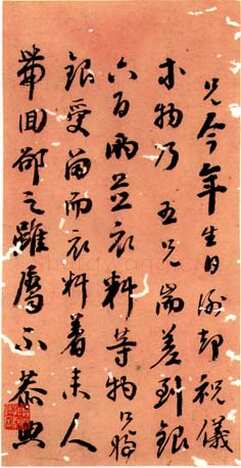 兄今年生日謝却祝儀
物乃五兄耑差到銀
六百兩並衣料等物只將
銀受留而衣料着來人
帶回却之雖屬不恭